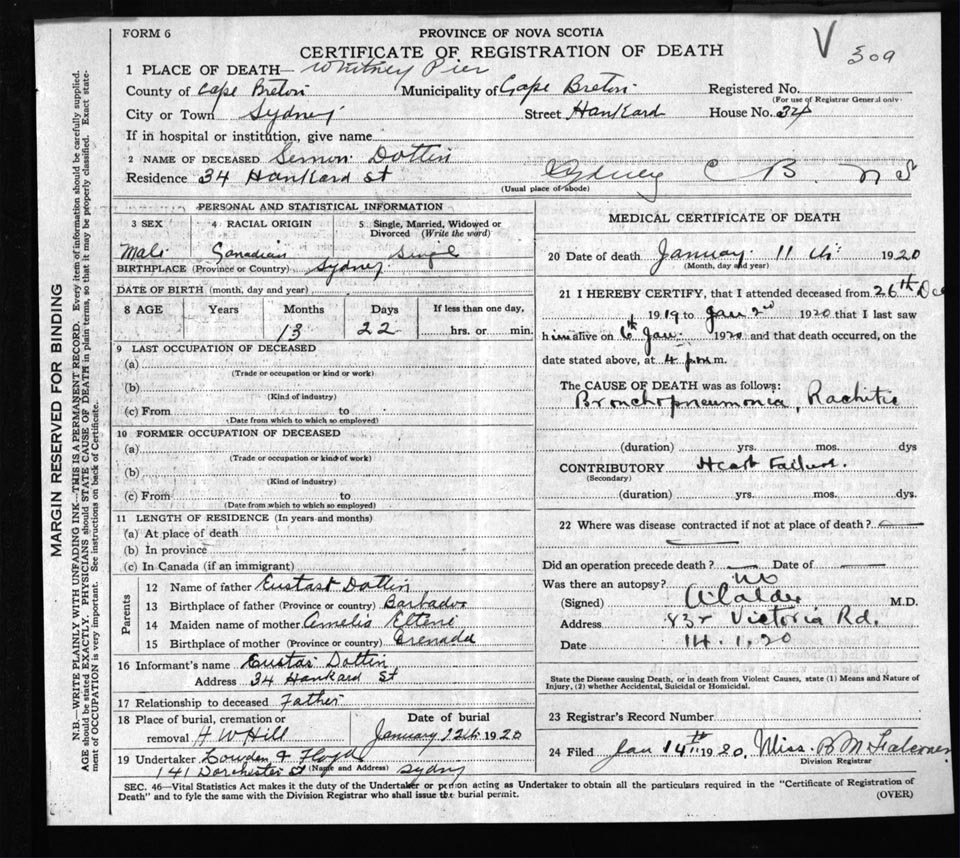 FORM 6
PROVINCE OF NOVA SCOTIA
CERTIFICATE OF REGISTRATION OF DEATH
V 309
1 PLACE OF DEATH— Whitney Pier
County of Cape Breton Municipality of Cape Breton Registered No.
(For use of Registrar General only)
City or Town Sydney Street Hankard House No. 34
If in hospital or institution, give name
2 NAME OF DECEASED Semon Dottin
Residence 34 Hankard St Sydney C B. N S
(Usual place of abode)
PERSONAL AND STATISTICAL INFORMATION
3 SEX 4 RACIAL ORIGIN 5 Single, Married, Widowed or Divorced (Write the word)
Male Canadian Single
BIRTHPLACE (Province or Country) Sydney
DATE OF BIRTH (month, day and year)
8 AGE Years Months Days If less than one day,
13 22 hrs. or min.
9 LAST OCCUPATION OF DECEASED
(a)
(Trade or occupation or kind or work)
(b)
(Kind of industry)
(c) From to
(Date from which to which so employed)
10 FORMER OCCUPATION OF DECEASED
(a)
(Trade or occupation or kind of work)
(b)
(Kind of industry)
(c) From to
(Date from which to which so employed)
11 LENGTH OF RESIDENCE (In years and months)
(a) At place of death
(b) In province
(c) In Canada (if an immigrant)
Parents
12 Name of father Eustast Dottin
13 Birthplace of father (Province or country) Barbados
14 Maiden name of mother Amelia Eltene
15 Birthplace of mother (Province or country) Grenada
16 Informant's name Eustas Dottin
Address 34 Hankard St
17 Relationship to deceased Father
18 Place of burial, cremation or Date of burial
removal H W Hill January 12th 1920
19 Undertaker Lowden & Floyd
141 Dorchester St (Name and Address) Sydny
MEDICAL CERTIFICATE OF DEATH
20 Date of death January 11th 1920
(Month, day and year)
21 I HEREBY CERTIFY, that I attended deceased from 26th Dec
1919 to Jan 2nd 1920 that I last saw
him alive on 6th Jan: 1920 and that death occurred, on the
date stated above, at 4 p.m m.
The CAUSE OF DEATH was as follows:
Bronchopneumonia, Rachitis
(duration) yrs. mos. dys
CONTRIBUTORY Heart Failure.
(Secondary)
(duration) yrs. mos. dys.
22 Where was disease contracted if not at place of death?
Did an operation precede death? Date of
Was there an autopsy? No
(Signed) M.D.
Address Victoria Rd.
Date 14.1.20
State the Disease causing Death, or in death from Violent Causes, state (1) Means and Nature of
Injury, (2) whether Accidental, Suicidal or Homicidal.
23 Registrar's Record Number
24 Filed Jan 14th 1920, Miss. B M Falconer
Division Registrar
SEC. 46—Vital Statistics Act makes it the duty of the Undertaker or person acting as Undertaker to obtain all the particulars required in the "Certificate of Registration of
Death" and to fyle the same with the Division Registrar who shall issue the burial permit. (OVER)
MARGIN RESERVED FOR BINDING
N.B.—WRITE PLAINLY WITH UNFADING INK—THIS IS A PERMANENT RECORD. Every item of information should be carefully supplied.
AGE should be stated EXACTLY. PHYSICIANS should STATE CAUSE OF DEATH in plain terms, so that it may be properly classified. Exact state-
ment of OCCUPATION is very important. See instructions on back of Certificate.